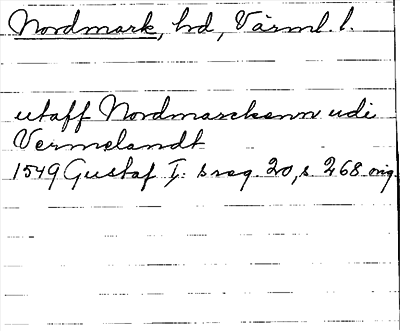 Nordmark, hd, Värml. l.
utaff Nordmarckenn udi
Vermelandt
1549 Gustaf I: s reg. 20, s. 268. orig.